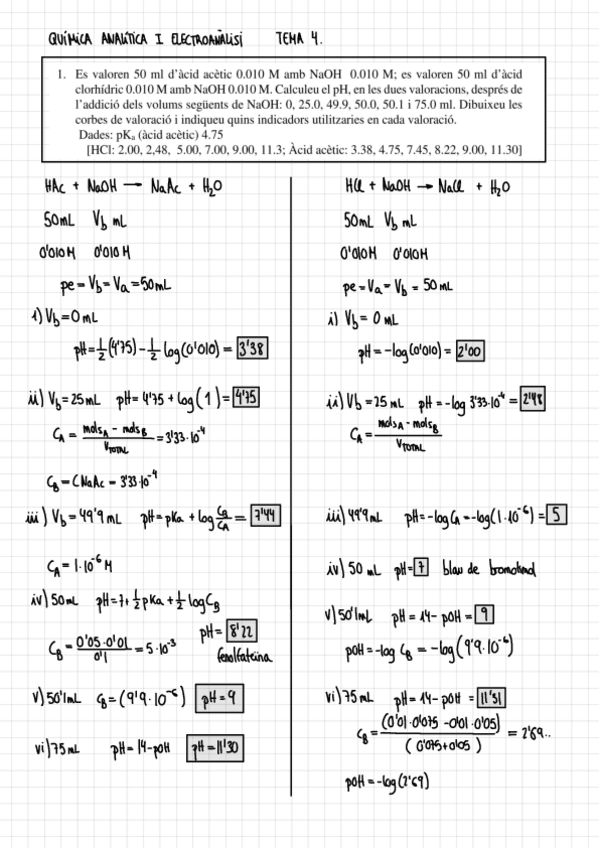 QUÍMICA ANALÍTICA I ELECTROANÀLISI TEMA 4.
1. Es valoren 50 ml d'àcid acètic 0.010 M amb NaOH 0.010 M; es valoren 50 ml d'àcid
clorhídric 0.010 M amb NaOH 0.010 M. Calculeu el pH, en les dues valoracions, després de
l'addició dels volums següents de NaOH: 0, 25.0, 49.9, 50.0, 50.1 i 75.0 ml. Dibuixeu les
corbes de valoració i indiqueu quins indicadors utilitzaries en cada valoració.
Dades: pKa (àcid acètic) 4.75
[HCl: 2.00, 2,48, 5.00, 7.00, 9.00, 11.3; Àcid acètic: 3.38, 4.75, 7.45, 8.22, 9.00, 11.30]
HAc + NaOH → NaAc + H2O
50mL Vb mL
0'010M 0'010M
pe = Vb = Va = 50mL
i) Vb = 0mL
pH = 1/2 (4'75) - 1/2 log(0'010) = 3'38
ii) Vb = 25mL pH = 4'75 + log(1) = 4'75
CA = molsA - molsB / VTOTAL = 3'33·10^-4
CB = CNaAc = 3'33·10^-4
iii) Vb = 49'9mL pH = pKa + log CB/CA = 7'44
CA = 1·10^-6 M
iv) 50mL pH = 7 + 1/2 pKa + 1/2 log CB
CB = 0'05·0'01 / 0'1 = 5·10^-3 pH = 8'22
fenolftaleïna
v) 50'1mL CB = (9'9·10^-6) pH = 9
vi) 75mL pH = 14-pOH pH = 11'30
HCl + NaOH → NaCl + H2O
50mL Vb mL
0'010M 0'010M
pe = Va = Vb = 50mL
i) Vb = 0mL
pH = -log(0'010) = 2'00
ii) Vb = 25mL pH = -log 3'33·10^-4 = 2'48
CA = molsA - molsB / VTOTAL
iii) 49'9mL pH = -log CA = -log(1·10^-6) = 5
iv) 50mL pH = 7 blau de bromotimol
v) 50'1mL pH = 14-pOH = 9
pOH = -log CB = -log(9'9·10^-6)
vi) 75mL pH = 14-pOH = 11'31
CB = (0'01·0'075 - 0'01·0'05) / (0'075+0'05) = 2'69..
pOH = -log(2'69)